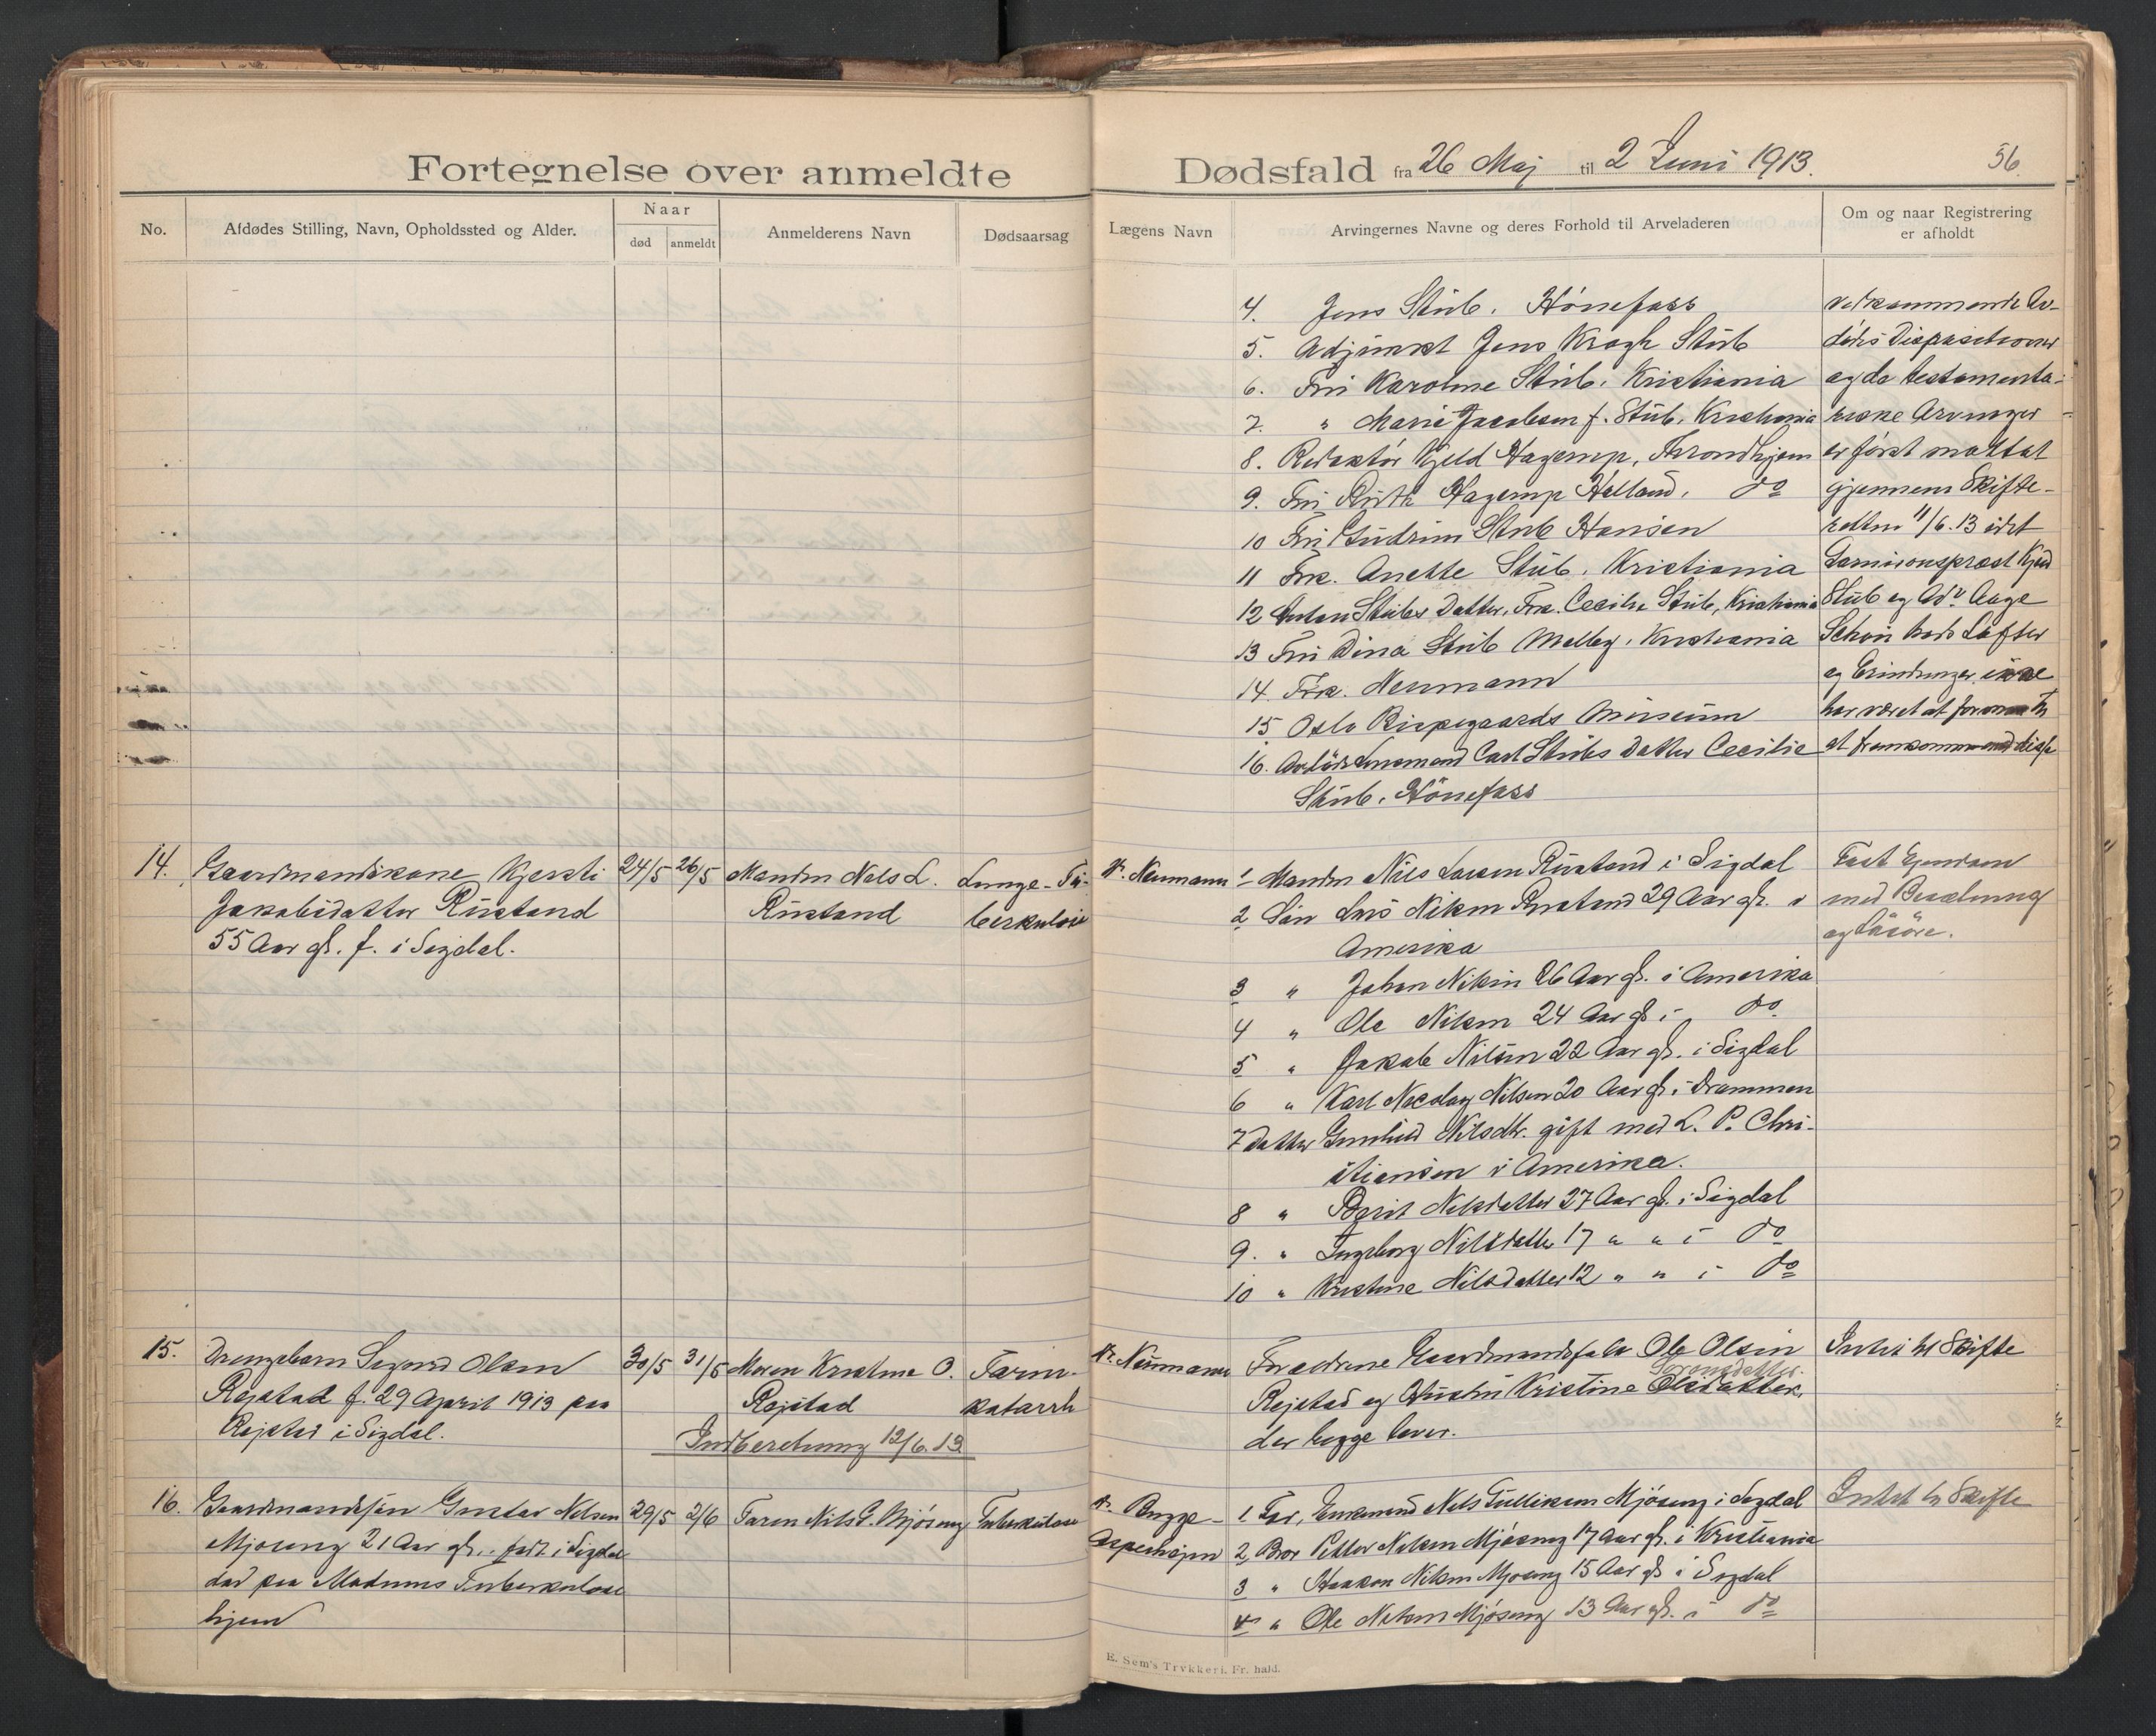 Fortegnelse over anmeldte
Dødsfald fra 26 Maj til 2 Juni 1913.
56
No.
Afdødes Stilling, Navn, Opholdssted og Alder.
Naar
død
anmeldt
Anmelderens Navn
Dødsaarsag
Lægens Navn
Arvingernes Navne og deres Forhold til Arveladeren
Om og naar Registrering
er afholdt
4. Jens Stub. Hönefoss
5. Adjunkt Jens Kragh Stub
6. Fru Karoline Stub, Kristiania
7. " Marie Jacobsen f. Stub, Kristiania
8. Redaktör Kjeld Hagerup, Throndhjem
9. Fru Ruth Hagerup Helland, do
10 Fru Gudrun Stub Hansen
11 Frk. Anette Stub, Kristiania
12 Anton Stubs Datter, Frk. Cecilie Stub, Kristiania
13 Fru Dina Stub Melby, Kristiania
14. Frk. Neumann
15 Oslo Bispegaards Museum
16. Avdöde Lensmand Carl Stubs Datter Cecilie
Stub, Hönefoss
vedkommende Av-
dödes Dispositioner
og de testamenta-
riske Arvinger
er först mottat
gjennem Skifte-
retten 11/6. 13 idet
Garnisonsprest Kjeld
Stub og Adv Aage
Schou
14.
Gaardmandskone Kjersti
Jakobsdatter Rustand
55 Aar gl. f. i Sigdal.
24/5
26/5
Manden Nils L.
Rustand
Lunge-Tu-
berkulose
Dr. Neumann
1 Manden Nils Larsen Rustand i Sigdal
2 Sön Lars Nilsen Rustand 29 Aar gl. i
Amerika
3 " Johan Nilsen 26 Aar gl. i Amerika
4 " Ole Nilsen 24 Aar gl. i do
5 " Jakob Nilsen 22 Aar gl. i Sigdal
6 " Karl Nicolay Nilsen 20 Aar gl. i Drammen
7 Datter Gunhild Nilsdtr. gift med L. P. Chri-
stiansen i Amerika.
8 " Berit Nilsdatter 27 Aar gl. i Sigdal
9. " Ingeborg Nilsdatter 17 " " i do
10 " Kristine Nilsdatter 12 " " i do
Fast Ejendom
med Besætning
og Lösöre.
15.
Drengebarn Sigurd Olsen
Rejstad f. 29 April 1913 paa
Rejstad i Sigdal.
30/5
31/5
Moren Kristine O.
Rejstad
Tarm-
katarrh
Indberetning 12/6. 13
Dr. Neumann
Forældrene Gaardmandsfolk Ole Olsen
Sorensdatter
Rejstad og Hustru Kristine Olsdatter,
der begge lever.
Intet til Skifte
16.
Gaardmandssön Gustav Nilsen
Mjöseng 21 Aar gl. født i Sigdal
död paa Modums Tuberkulose
hjem
29/5
2/6
Faren Nils T. Mjöseng
Tuberkulose
Dr. Bugge-
Asperheim
1. Far, Enkemand Nils Tulliksen Mjöseng i Sigdal
2. Bror Petter Nilsen Mjöseng 17 Aar gl. i Kristiania
3 " Haakon Nilsen Mjöseng 15 Aar gl. i Sigdal
4 " Ole Nilsen Mjöseng 13 Aar gl. i do
Intet til Skifte
E. Sem's Trykkeri, Fr. hald.